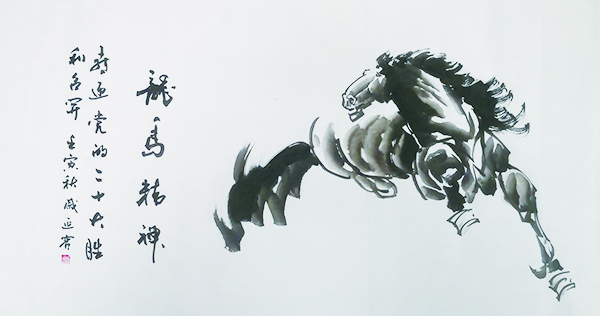 龍馬精神
喜迎党的二十大胜
利召开 壬寅秋